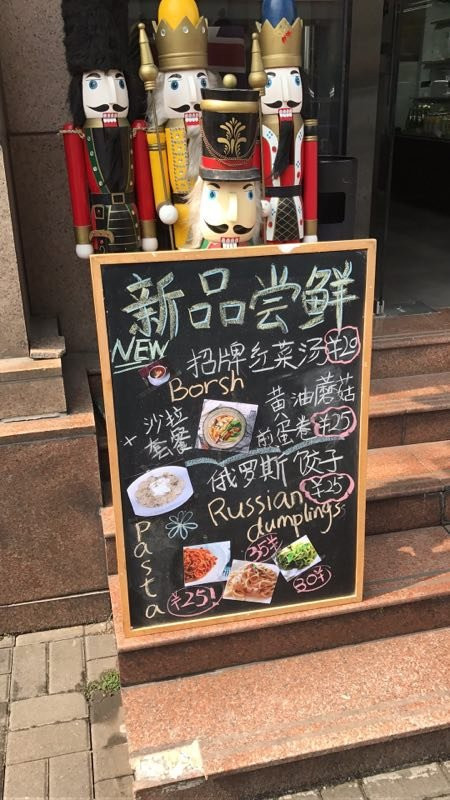 新品尝鲜
NEW
招牌红菜汤 ¥29
Borsh
+ 沙拉套餐
黄油蘑菇
煎蛋卷 ¥25
俄罗斯饺子
¥25
Russian
dumplings
Pasta
¥25!
35¥
30¥